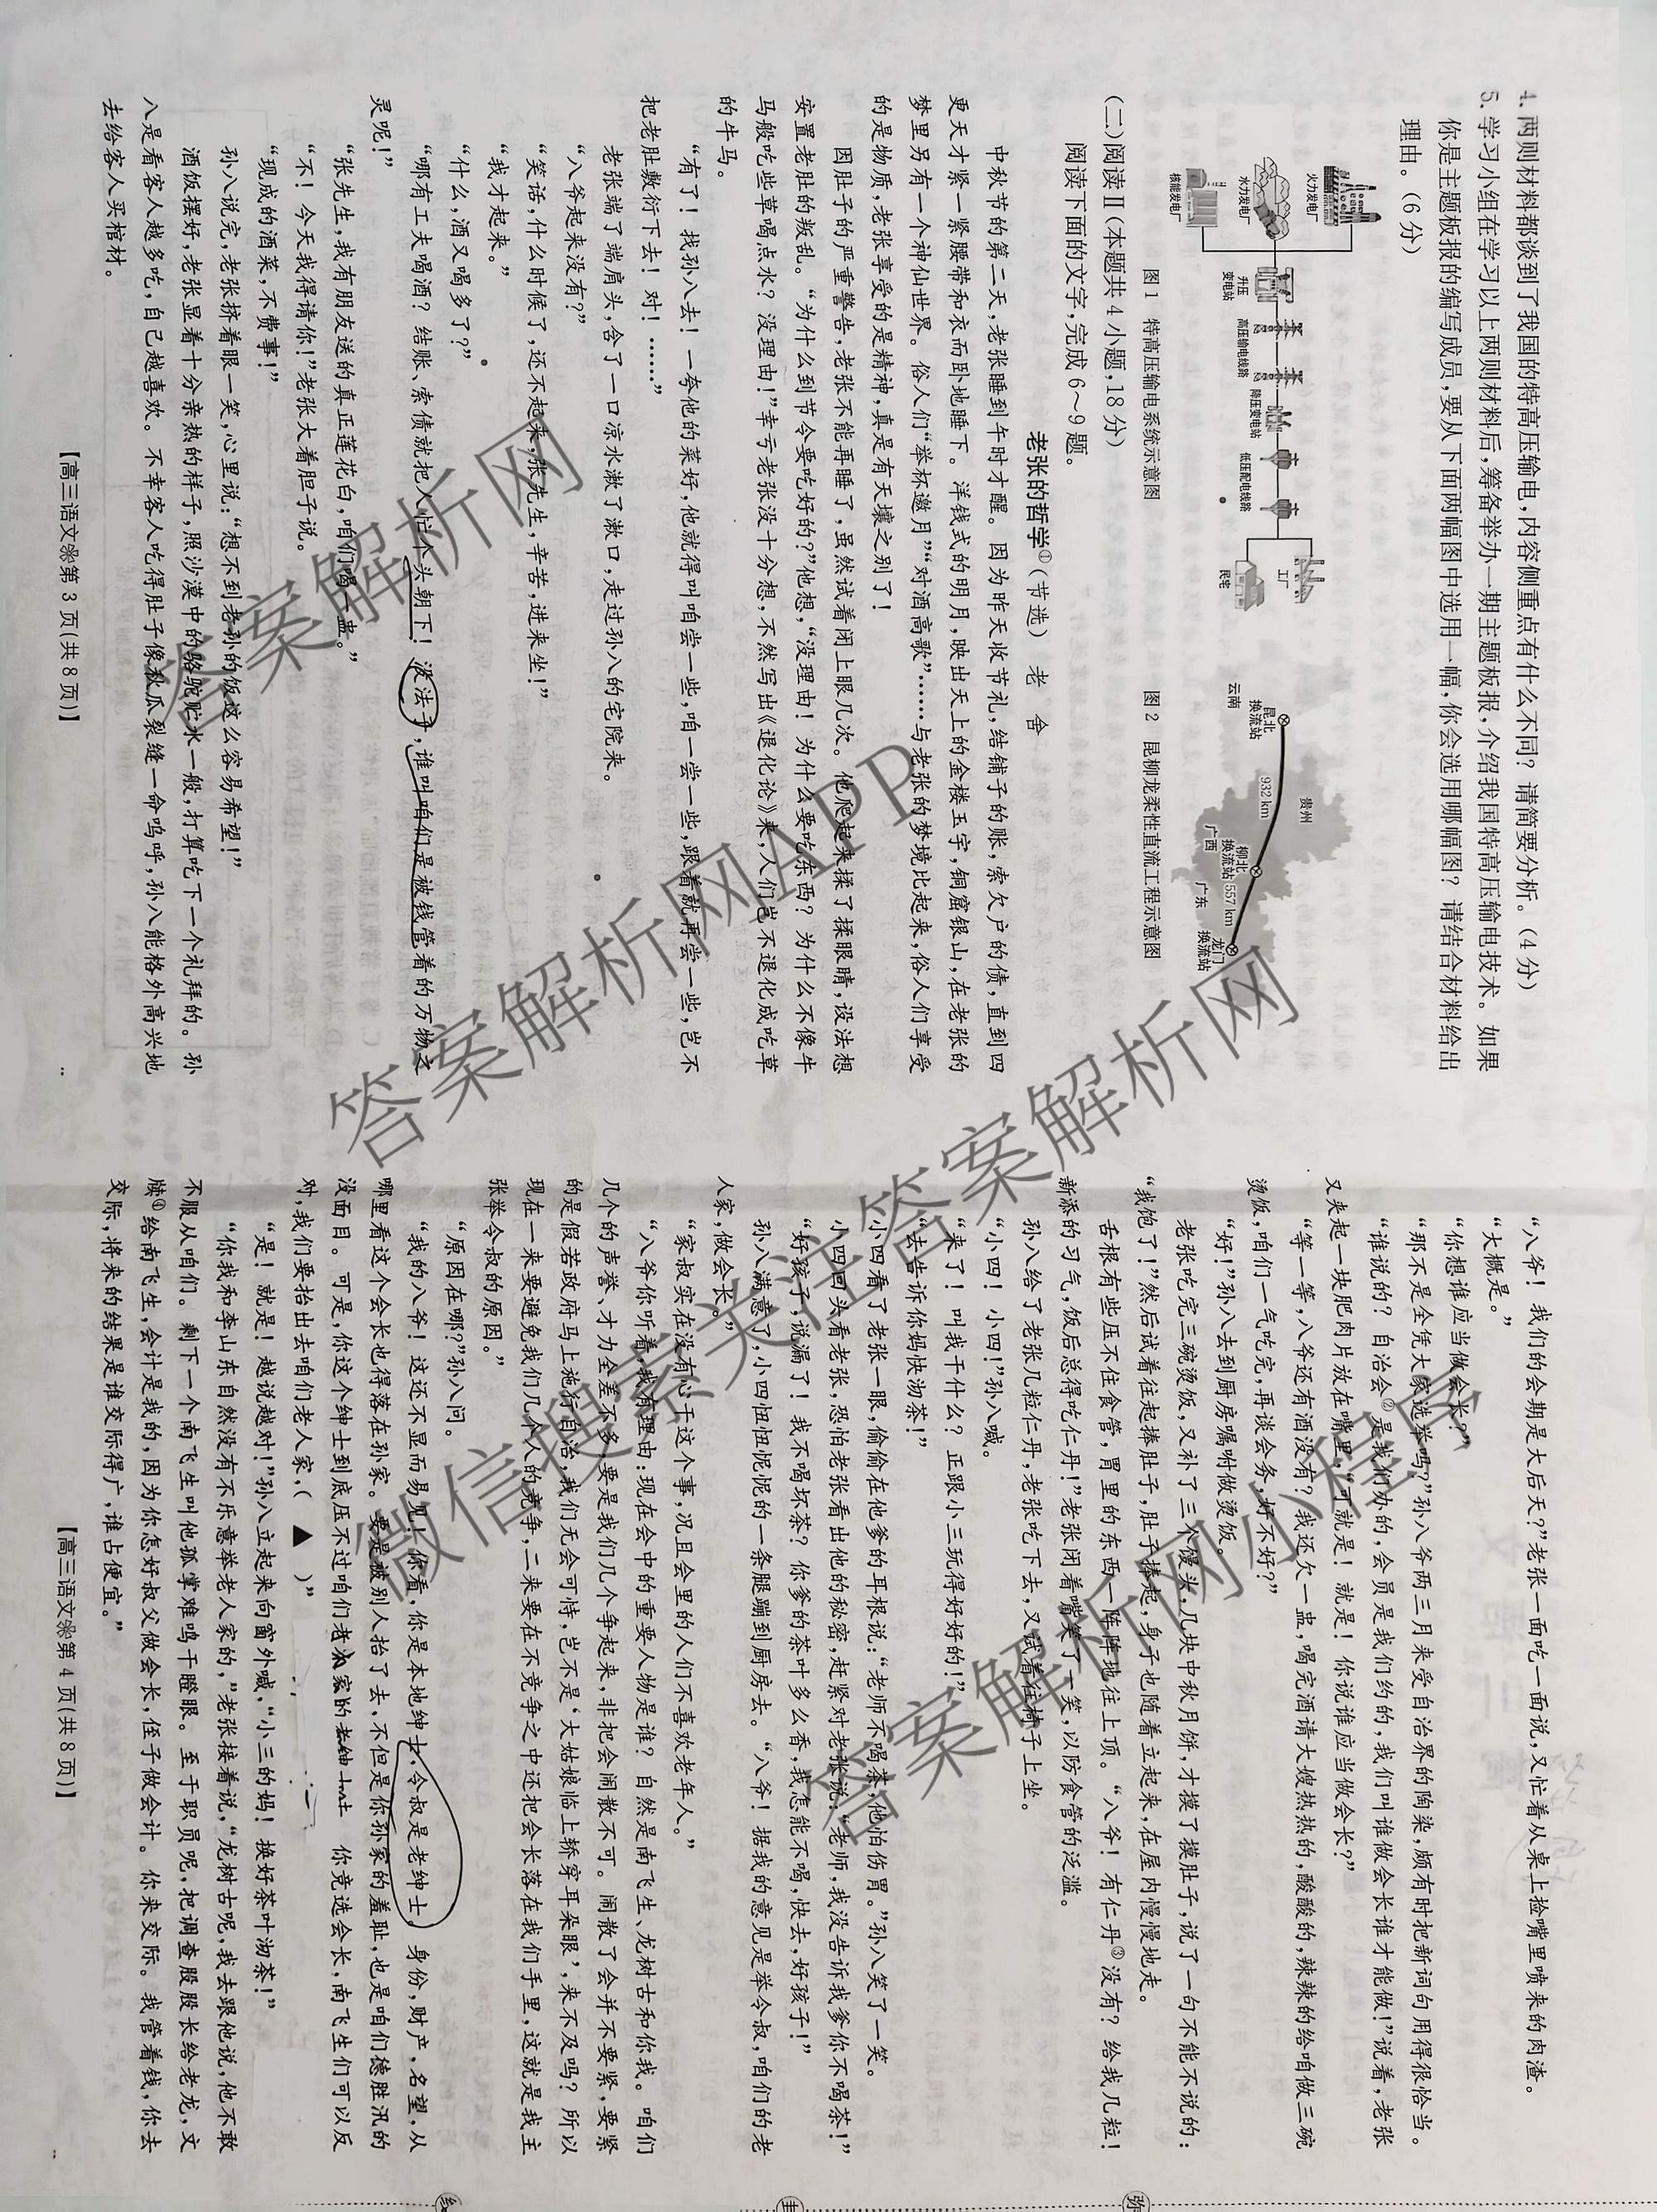 4. 两则材料都谈到了我国的特高压输电,内容侧重点有什么不同?请简要分析。(4分)
5. 学习小组在学习以上两则材料后,筹备举办一期主题板报,介绍我国特高压输电技术。如果
你是主题板报的编写成员,要从下面两幅图中选用一幅,你会选用哪幅图?请结合材料给出
理由。(6分)
火力发电厂
水力发电厂
核能发电厂
升压
变电站
高压输电线路
降压变电站
低压配电线路
工厂
民宅
图1 特高压输电系统示意图
昆北
换流站
云南
932 km
贵州
柳北
换流站
广西
557 km
广东
龙门
换流站
图2 昆柳龙柔性直流工程示意图
(二)阅读Ⅱ(本题共4小题,18分)
阅读下面的文字,完成6~9题。
老张的哲学①(节选) 老 舍
中秋节的第二天,老张睡到午时才醒。因为昨天收节礼,结铺子的账,索欠户的债,直到四
更天才紧一紧腰带和衣而卧地睡下。洋钱式的明月,映出天上的金楼玉宇,铜窟银山,在老张的
梦里另有一个神仙世界。俗人们“举杯邀月”“对酒高歌”……与老张的梦境比起来,俗人们享受
的是物质,老张享受的是精神,真是有天壤之别了!
因肚子的严重警告,老张不能再睡了,虽然试着闭上眼几次。他爬起来揉了揉眼睛,设法想
安置老肚的叛乱。“为什么到节令要吃好的?”他想,“没理由!为什么要吃东西?为什么不像牛
马般吃些草喝点水?没理由!”幸亏老张没十分想,不然写出《退化论》来,人们岂不退化成吃草
的牛马。
“有了!找孙八去!一夸他的菜好,他就得叫咱尝一些,咱一尝一些,跟着就再尝一些,岂不
把老肚敷衍下去!对!……”
老张端了端肩头,含了一口凉水漱了漱口,走过孙八的宅院来。
“八爷起来没有?”
“笑话,什么时候了,还不起来,张先生,辛苦,进来坐!”
“我才起来。”
“什么,酒又喝多了?”
“哪有工夫喝酒?结账、索债就把人忙个头朝下!没法子,谁叫咱们是被钱管着的万物之
灵呢!”
“张先生,我有朋友送的真正莲花白,咱们喝一盅。”
“不!今天我得请你!”老张大着胆子说。
“现成的酒菜,不费事!”
孙八说完,老张挤着眼一笑,心里说:“想不到老孙的饭这么容易希望!”
酒饭摆好,老张显着十分亲热的样子,照沙漠中的骆驼贮水一般,打算吃下一个礼拜的。孙
八是看客人越多吃,自己越喜欢。不幸客人吃得肚子像秋瓜裂缝一命呜呼,孙八能格外高兴地
去给客人买棺材。
【高三语文※第3页(共8页)】
“八爷!我们的会期是大后天?”老张一面吃一面说,又忙着从桌上捡嘴里喷来的肉渣。
“大概是。”
“你想谁应当做会长?”
“那不是全凭大家选举吗?”孙八爷两三月来受自治界的陶染,颇有时把新词句用得很恰当。
“谁说的?自治会②是我们办的,会员是我们约的,我们叫谁做会长谁才能做!”说着,老张
又夹起一块肥肉片放在嘴里,“可就是!就是!你说谁应当做会长?”
“等一等,八爷还有酒没有?我还欠一盅,喝完酒请大嫂热热的,酸酸的,辣辣的给咱做三碗
烫饭,咱们一气吃完,再谈会务,好不好?”
“好!”孙八去到厨房嘱咐做烫饭。
老张吃完三碗烫饭,又补了三个馒头,几块中秋月饼,才摸了摸肚子,说了一句不能不说的:
“我饱了!”然后试着往起捧肚子,肚子捧起,身子也随着立起来,在屋内慢慢地走。
舌根有些压不住食管,胃里的东西一阵阵地往上顶。“八爷!有仁丹③没有?给我几粒!
新添的习气,饭后总得吃仁丹!”老张闭着嘴笑了一笑,以防食管的泛滥。
孙八给了老张几粒仁丹,老张吃下去,又试着往椅子上坐。
“小四!小四!”孙八喊。
“来了!叫我干什么?正跟小三玩得好好的!”
“去告诉你妈快沏茶!”
小四看了老张一眼,偷偷在他爹的耳根说:“老师不喝茶,他怕伤胃。”孙八笑了一笑。
小四回头看老张,恐怕老张看出他的秘密,赶紧对老张说:“老师,我没告诉我爹你不喝茶!”
“好孩子,说漏了!我不喝坏茶?你爹的茶叶多么香,我怎能不喝,快去,好孩子!”
孙八满意了,小四忸忸怩怩的一条腿蹦到厨房去。“八爷!据我的意见是举令叔,咱们的老
人家,做会长。”
“家叔实在没有心干这个事,况且会里的人们不喜欢老年人。”
“八爷你听着,我有理由:现在会中的重要人物是谁?自然是南飞生、龙树古和你我。咱们
几个的声誉、才力全差不多,要是我们几个争起来,非把会闹散不可。闹散了会并不要紧,要紧
的是假若政府马上施行自治,我们无会可恃,岂不是‘大姑娘临上轿穿耳朵眼’,来不及吗?所以
现在一来要避免我们几个人的竞争,二来要在不竞争之中还把会长落在我们手里,这就是我主
张举令叔的原因。”
“原因在哪?”孙八问。
“我的八爷!这还不显而易见!你看,你是本地绅士,令叔是老绅士。身份,财产,名望,从
哪里看这个会长也得落在孙家。要是被别人抬了去,不但是你孙家的羞耻,也是咱们德胜汛的
没面目。可是,你这个绅士到底压不过咱们老人家的老绅士 你竞选会长,南飞生们可以反
对,我们要抬出去咱们老人家,( ▲ )”
“是!就是!越说越对!”孙八立起来向窗外喊,“小三的妈!换好茶叶沏茶!”
“你我和李山东自然没有不乐意举老人家的,”老张接着说,“龙树古呢,我去跟他说,他不敢
不服从咱们。剩下一个南飞生叫他孤掌难鸣干瞪眼。至于职员呢,把调查股股长给老龙,文
牍④给南飞生,会计是我的,因为你怎好叔父做会长,侄子做会计。你来交际。我管着钱,你去
交际,将来的结果是谁交际得广,谁占便宜。”
【高三语文※第4页(共8页)】
答案解析网
答案解析网APP
微信搜索关注答案解析网
答案解析网
弥
封
线